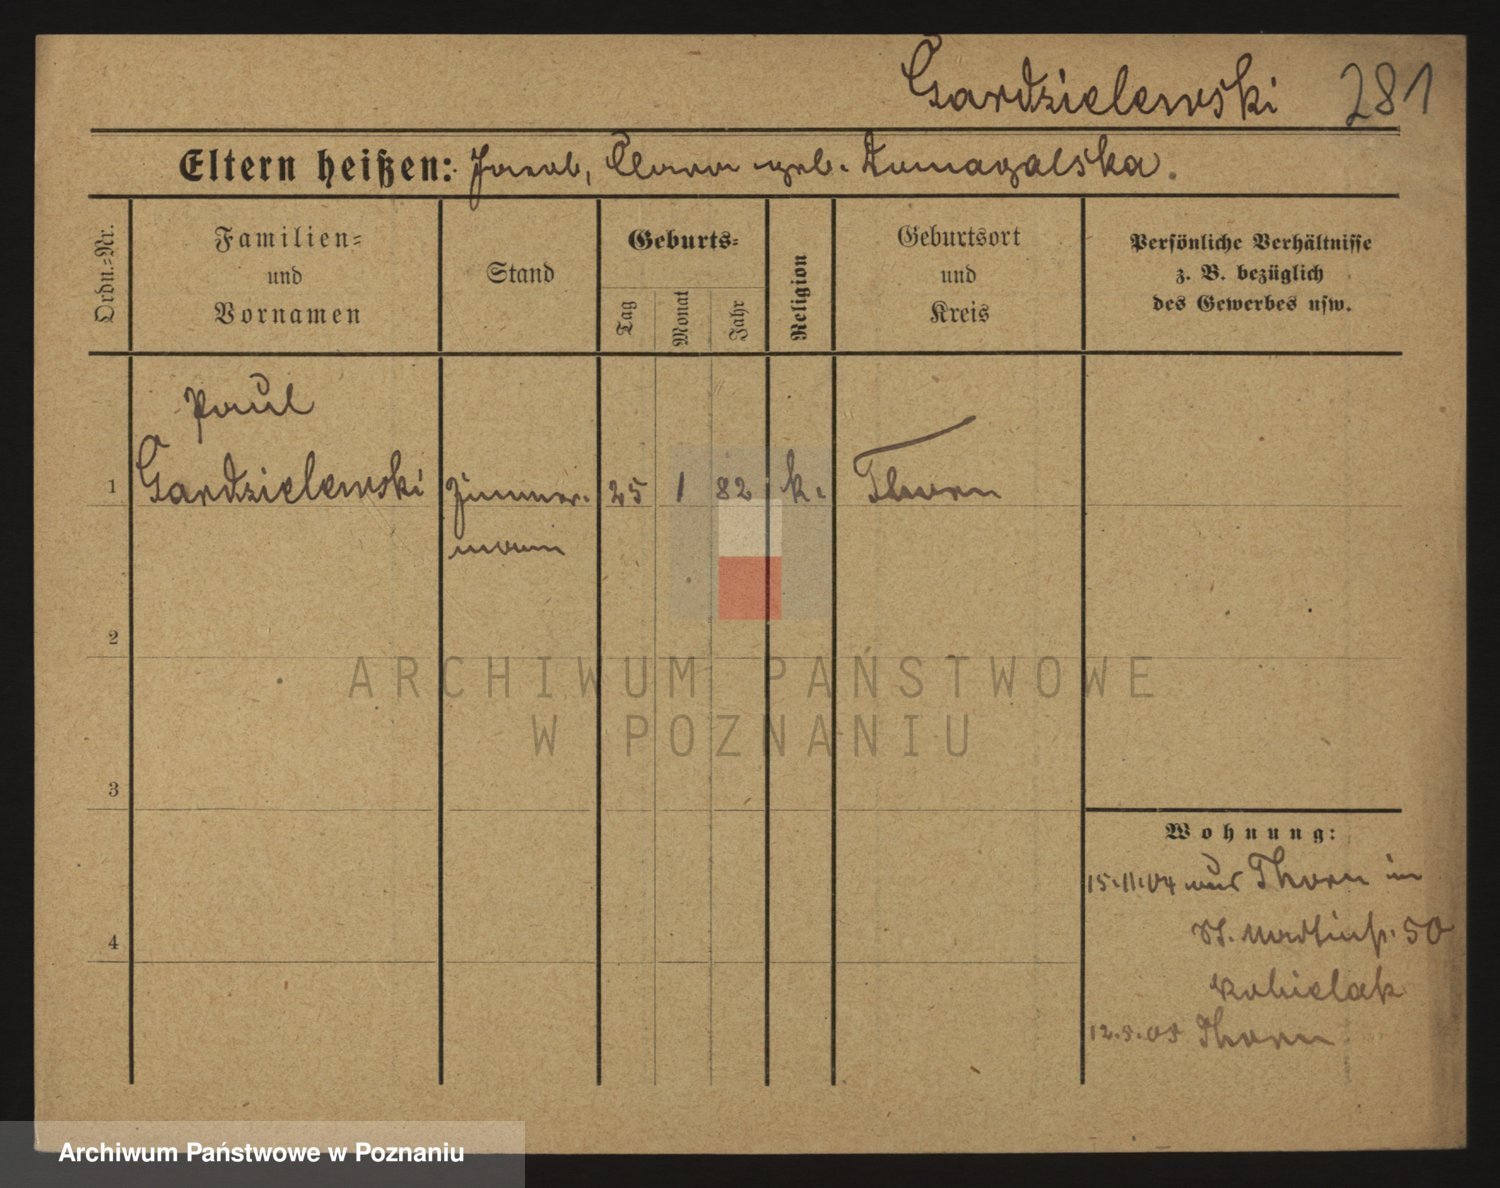 Gardzielewski 281
Eltern heißen: Jacob, Clara geb. Domagalska.
Ordn.-Nr.
Familien-
und
Vornamen
Stand
Geburts-
Tag
Monat
Jahr
Religion
Geburtsort
und
Kreis
Persönliche Verhältnisse
z. B. bezüglich
des Gewerbes usw.
Paul
1 Gardzielewski Zimmer- 25 1 82 k. Thorn
mann
2
ARCHIWUM PAŃSTWOWE
W POZNANIU
3
Wohnung:
15.11.04 aus Thorn in
St. Martinstr. 50
Kobielak
4
12.5.05 Thorn
Archiwum Państwowe w Poznaniu